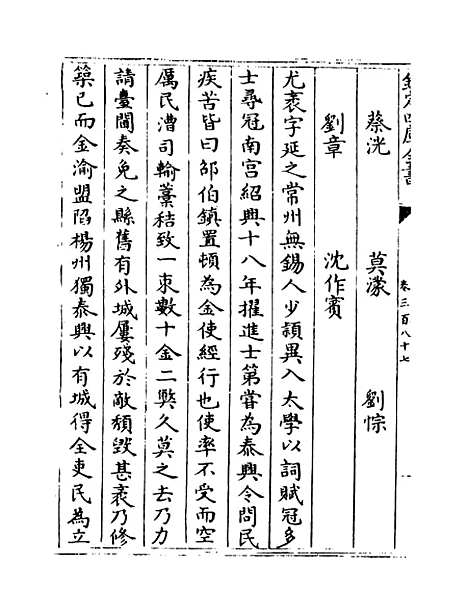 欽定四庫全書
卷三百八十七
蔡洸　莫濛　劉悰
劉章　沈作賓
尤袤字延之常州無錫人少頴異入太學以詞賦冠多
士尋冠南宫紹興十八年擢進士第嘗為泰興令問民
疾苦皆曰邵伯鎮置頓為金使經行也使率不受而空
厲民漕司輸藁秸致一束數十金二弊久莫之去乃力
請臺閫奏免之縣舊有外城屢殘於敵頽毀甚袤乃修
築已而金渝盟陷楊州獨泰興以有城得全吏民為立